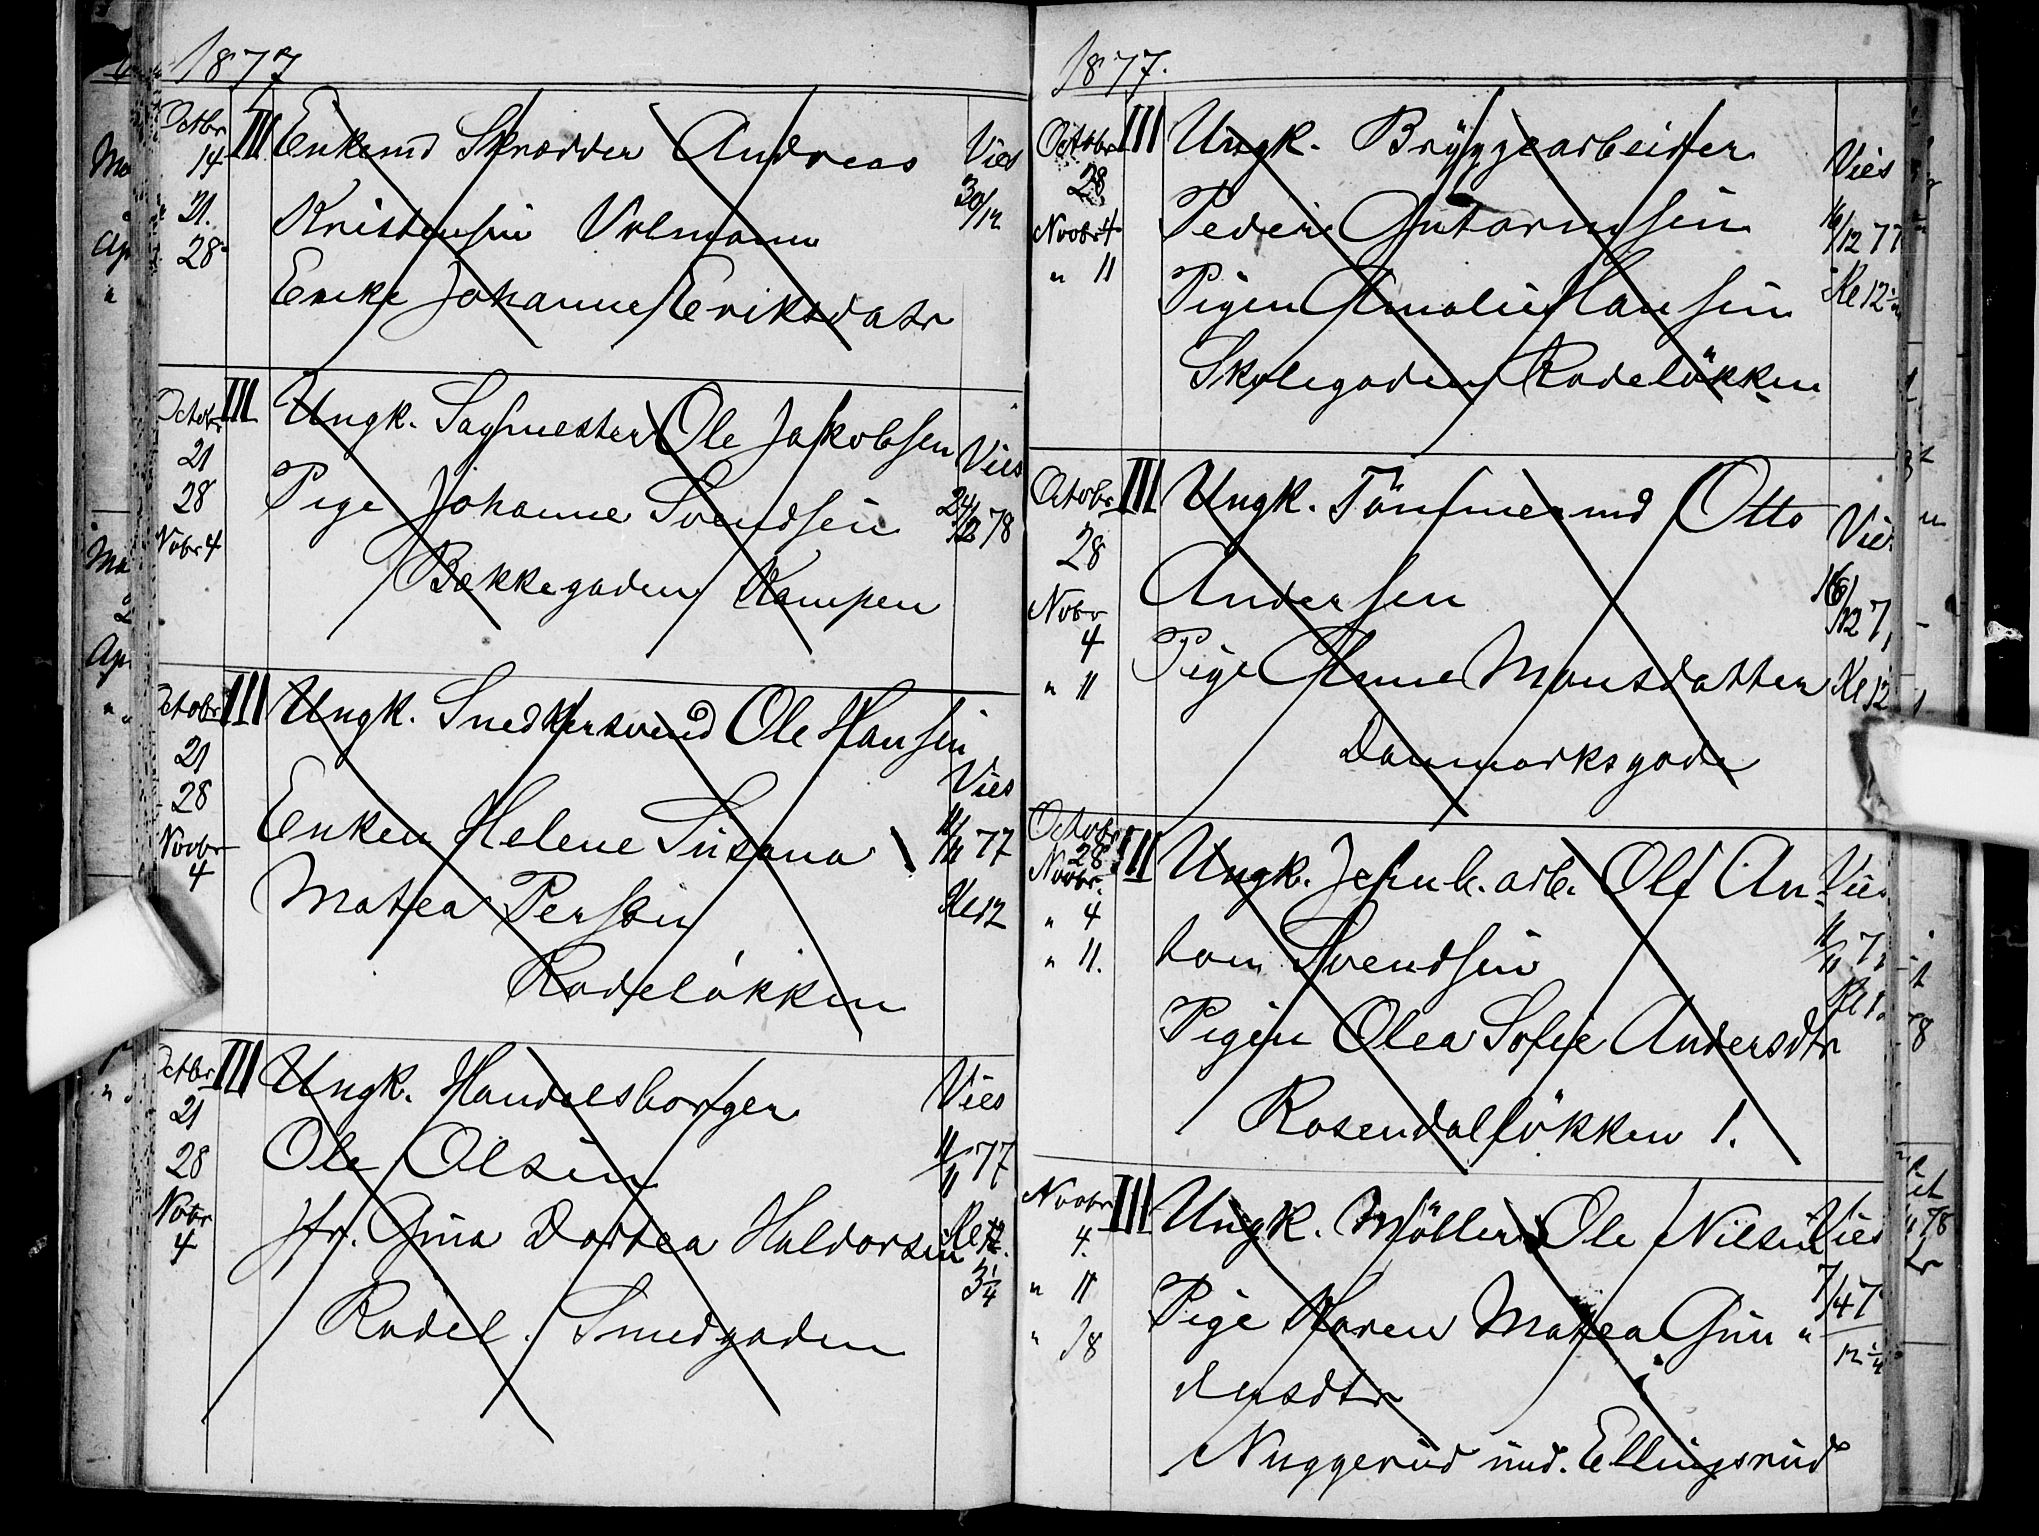 1877
Octbr
14
21.
28
III
Enkemd Skrædder Andreas
Kristensen Volmann
Enke Johanne Eriksdatr
Vies
30/12
Octobr
21
28
Nobr 4
III
Ungk. Sagmester Ole Jakobsen
Pige Johanne Svendsen
Bækkegaden Kampen
Vies
78
Octobr
21
28
Novbr
4
III
Ungk. Snedkersvend Ole Hansen
Enken Helene Susana
Matea Persen
Rodeløkken
Vies
11/11 77
Kl 12
Octbr
21
28
Novbr
4
III
Ungk. Handelsborger
Ole Olsen
Jfr. Gina Dortea Haldorsen
Rodel. Smedgaden
Vies
11/11 77
Kl 12.
3¼
1877.
Octobr
28
Novbr 4
" 11
III
Ungk. Bryggearbeider
Peder Gutormsen
Pigen Amalie Hansen
Skolegaden Rodeløkken
Vies
16/12 77
Kl 12½
Octobr
28
Nobr
4
" 11
III
Ungk. Tömmermd Otto
Andersen
Pige Anne Monsdatter
Danmarksgade
Vies
16/12 7
Kl 12
Octobr
28
Novbr.
" 4
" 11.
III
Ungk. Jernb. arb. Ole An-
ton Svendsen
Pigen Olea Sofie Andersdtr
Rosendalløkken 1.
Vies
11/11 7
Kl 1
Novbr
4.
" 11
" 18
III
Ungk. Möller Ole Nilsen
Pige Karen Matea Gun "
dersdtr
Nuggerud und. Ellingsrud
Vies
12 ¼